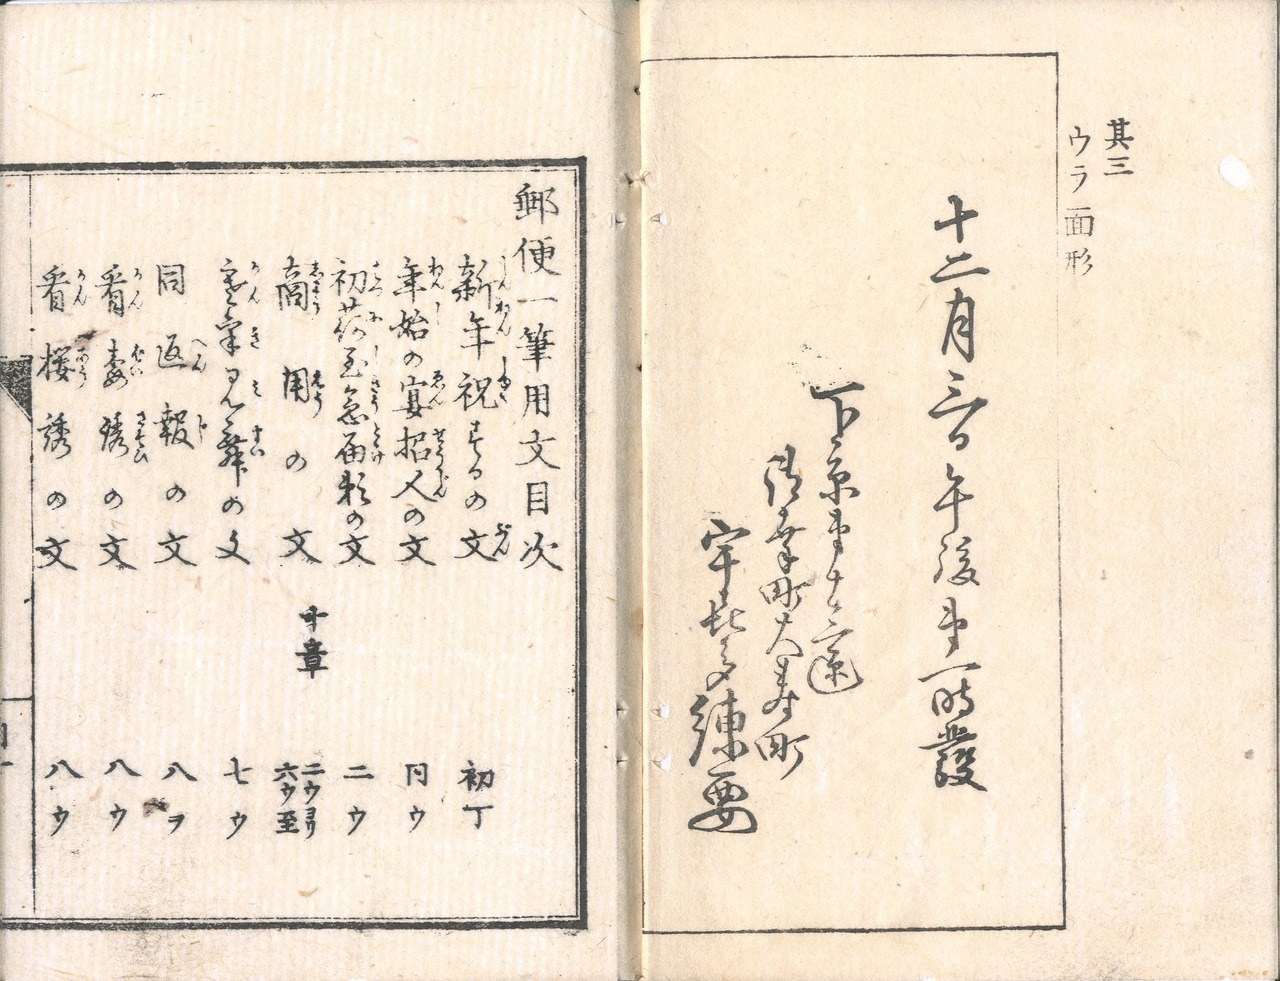 其三
ウラ面形
十二月三日午後第一時發
下京第十三區
大黒町
宇喜多練要
郵便一筆用文目次
新年祝する文 初丁
年始の宴招人の文 同ウ
初荷至急届方の文 二ウ
商用の文 十章 二ウヨリ六ウ至
寒氣見舞の文 七ウ
同返報の文 八ヲ
看梅誘の文 八ウ
看櫻誘の文 八ウ